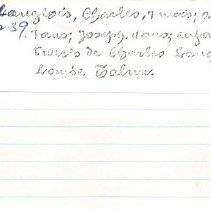 Langlois, Charles, 7 mois;
39. 7 ans; Joseph, 4 ans; enfa
turels de Charles Lang
Louise Talon.